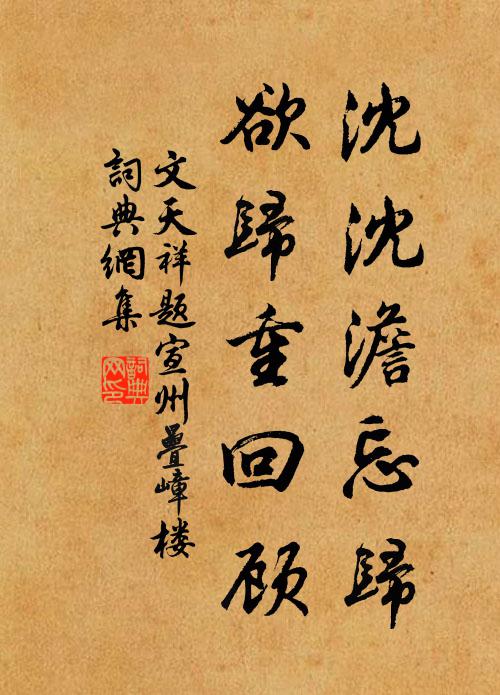 沈沈澹忘歸
欲歸重回顾
文天祥题宣州疊嶂楼
詞典網集
詞典网印